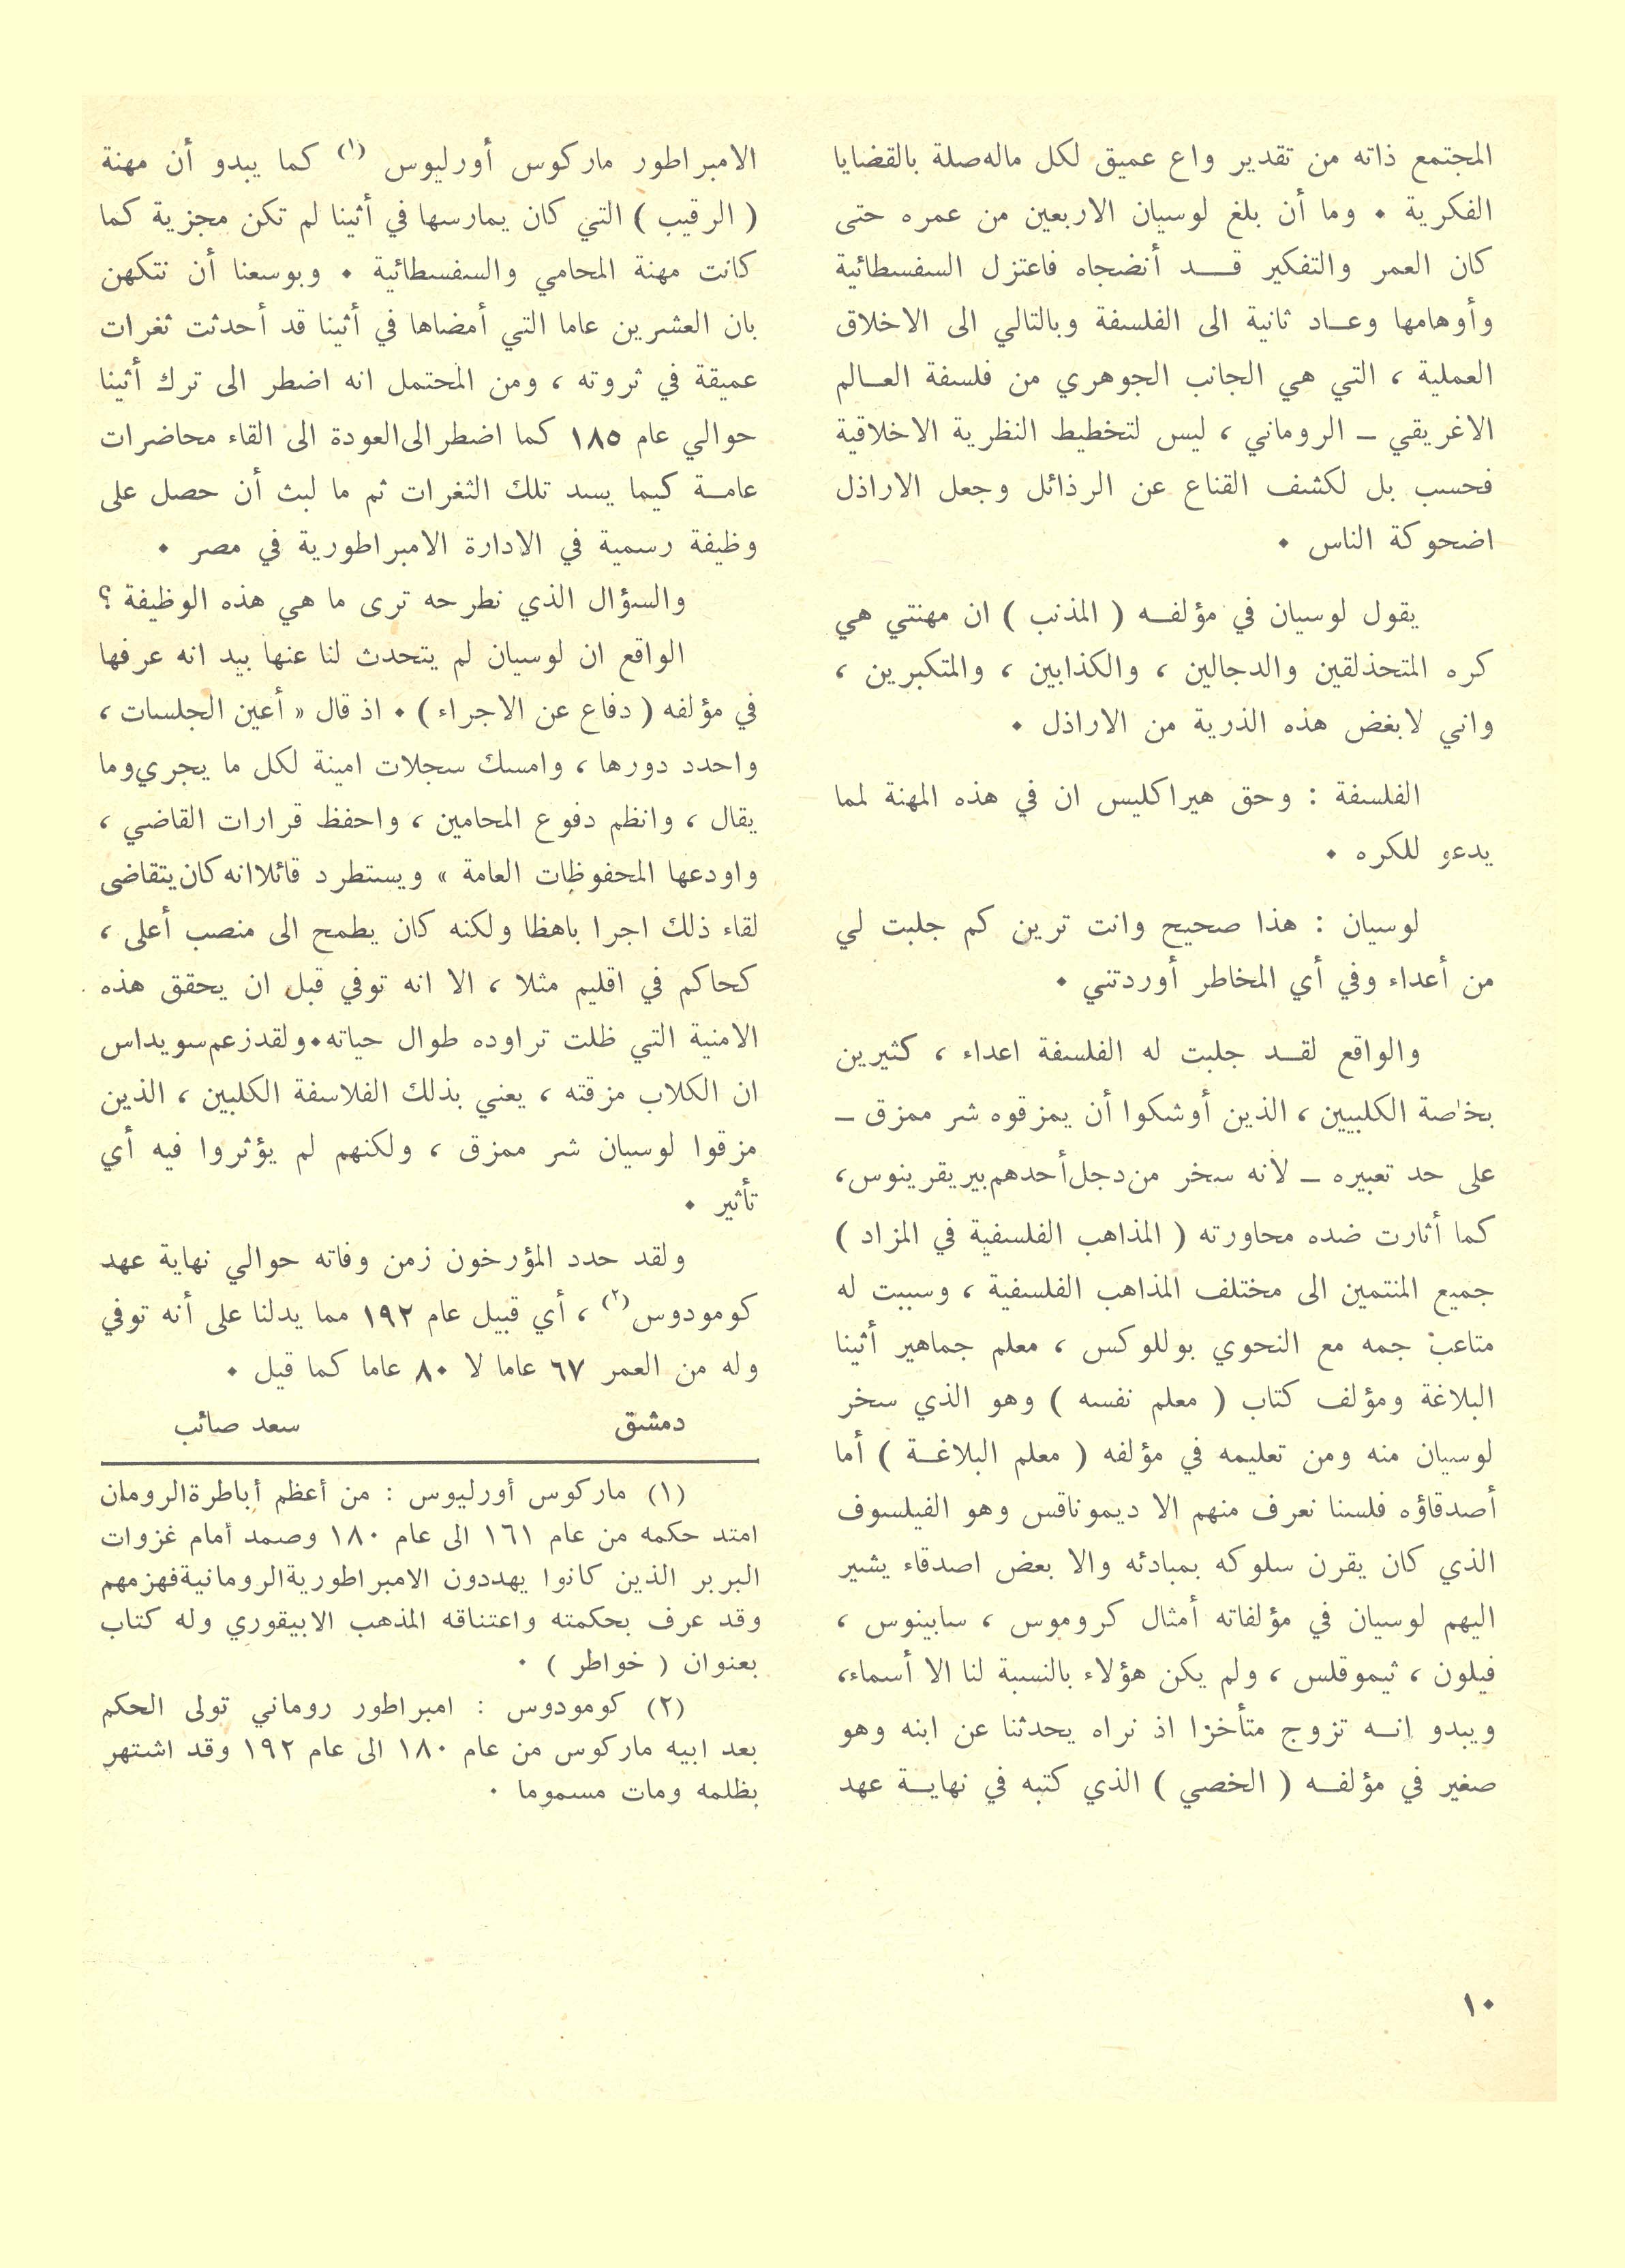 المجتمع ذاته من تقدير واع عميق لكل ماله صلة بالقضايا
الفكرية . وما أن بلغ لوسيان الاربعين من عمره حتى
كان العمر والتفكير قد أنضجاه فاعتزل السفسطائية
وأوهامها وعاد ثانية الى الفلسفة وبالتالي الى الاخلاق
العملية ، التي هي الجانب الجوهري من فلسفة العالم
الاغريقي – الروماني ، ليس لتخطيط النظرية الاخلاقية
فحسب بل لكشف القناع عن الرذائل وجعل الاراذل
اضحوكة الناس .
يقول لوسيان في مؤلفه ( المذنب ) ان مهنتي هي
كره المتحذلقين والدجالين ، والكذابين ، والمتكبرين ،
واني لابغض هذه الذرية من الاراذل .
الفلسفة : وحق هيراكليس ان في هذه المهنة لما
يدعو للكره .
لوسيان : هذا صحيح وانت ترين كم جلبت لي
من أعداء وفي أي المخاطر أوردتني .
والواقع لقد جلبت له الفلسفة اعداء ، كثيرين
بخاصة الكلبيين ، الذين أوشكوا أن يمزقوه شر ممزق –
على حد تعبيره – لأنه سخر من دجل أحدهم بيريقرينوس ،
كما أثارت ضده محاورته ( المذاهب الفلسفية في المزاد )
جميع المنتمين الى مختلف المذاهب الفلسفية ، وسببت له
متاعب جمه مع النحوي بوللوكس ، معلم جماهير أثينا
البلاغة ومؤلف كتاب ( معلم نفسه ) وهو الذي سخر
لوسيان منه ومن تعليمه في مؤلفه ( معلم البلاغة ) أما
أصدقاؤه فلسنا نعرف منهم الا ديموناقس وهو الفيلسوف
الذي كان يقرن سلوكه بمبادئه والا بعض اصدقاء يشير
اليهم لوسيان في مؤلفاته أمثال كروموس ، سابينوس ،
فيلون ، ثيموقلس ، ولم يكن هؤلاء بالنسبة لنا الا أسماء،
ويبدو انه تزوج متأخرا اذ نراه يحدثنا عن ابنه وهو
صغير في مؤلفه ( الخصي ) الذي كتبه في نهاية عهد
الامبراطور ماركوس أورليوس (١) كما يبدو أن مهنة
( الرقيب ) التي كان يمارسها في أثينا لم تكن مجزية كما
كانت مهنة المحامي والسفسطائية . وبوسعنا أن نتكهن
بان العشرين عاما التي أمضاها في أثينا قد أحدثت ثغرات
عميقة في ثروته ، ومن المحتمل انه اضطر الى ترك أثينا
حوالي عام ١٨٥ كما اضطر الى العودة الى القاء محاضرات
عامة كيما يسد تلك الثغرات ثم ما لبث أن حصل على
وظيفة رسمية في الادارة الامبراطورية في مصر .
والسؤال الذي نطرحه ترى ما هي هذه الوظيفة ؟
الواقع ان لوسيان لم يتحدث لنا عنها بيد انه عرفها
في مؤلفه ( دفاع عن الاجراء ) . اذ قال « أعين الجلسات ،
واحدد دورها ، وامسك سجلات امينة لكل ما يجري وما
يقال ، وانظم دفوع المحامين ، واحفظ قرارات القاضي ،
واودعها المحفوظات العامة » ويستطرد قائلا انه كان يتقاضى
لقاء ذلك اجرا باهظا ولكنه كان يطمح الى منصب أعلى ،
كحاكم في اقليم مثلا ، الا انه توفي قبل ان يحقق هذه
الامنية التي ظلت تراوده طوال حياته . ولقد زعم سويداس
ان الكلاب مزقته ، يعني بذلك الفلاسفة الكلبين ، الذين
مزقوا لوسيان شر ممزق ، ولكنهم لم يؤثروا فيه أي
تأثير .
ولقد حدد المؤرخون زمن وفاته حوالي نهاية عهد
كومودوس (٢) ، أي قبيل عام ١٩٢ مما يدلنا على أنه توفي
وله من العمر ٦٧ عاما لا ٨٠ عاما كما قيل .
دمشق سعد صائب
(١) ماركوس أورليوس : من أعظم أباطرة الرومان
امتد حكمه من عام ١٦١ الى عام ١٨٠ وصمد أمام غزوات
البربر الذين كانوا يهددون الامبراطورية الرومانية فهزمهم
وقد عرف بحكمته واعتناقه المذهب الابيقوري وله كتاب
بعنوان ( خواطر ) .
(٢) كومودوس : امبراطور روماني تولى الحكم
بعد ابيه ماركوس من عام ١٨٠ الى عام ١٩٢ وقد اشتهر
بظلمه ومات مسموما .
١٠